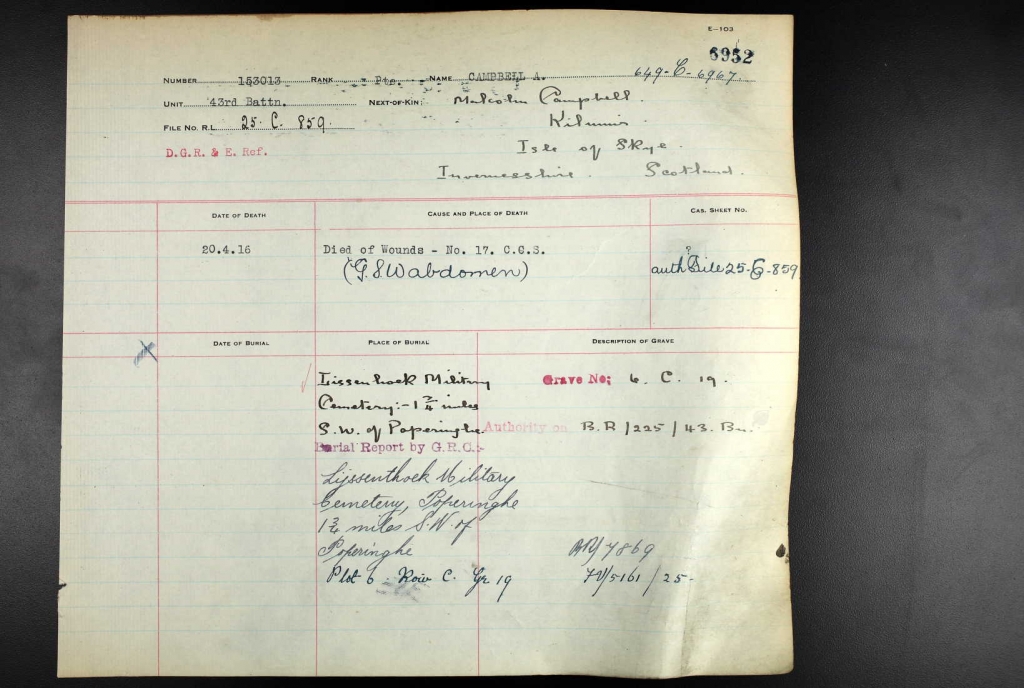 E-103
6952
NUMBER 153013 RANK Pte. NAME CAMPBELL A. 649-C-6967.
UNIT 43rd Battn. NEXT-OF-KIN: Malcolm Campbell.
FILE NO. R.L. 25. C. 859. Kilmuir.
D.G.R. & E. Ref. Isle of Skye.
Invernesshire. Scotland.
DATE OF DEATH CAUSE AND PLACE OF DEATH CAS. SHEET NO.
20.4.16 Died of Wounds - No. 17. C.C.S. ?
(G.S.W abdomen) auth File 25-C-859
DATE OF BURIAL PLACE OF BURIAL DESCRIPTION OF GRAVE
Lissenhoek Military Grave No; 6. C. 19.
Cemetery:- 1 3/4 miles
S.W. of Poperinghe. Authority on B.R/225/43. Bn.
Burial Report by G.R.C:-
Lijssenthoek Military
Cemetery, Poperinghe
1 3/4 miles S.W. of
Poperinghe BR/7869
Plot 6. Row C. Gr 19 /5161/25-